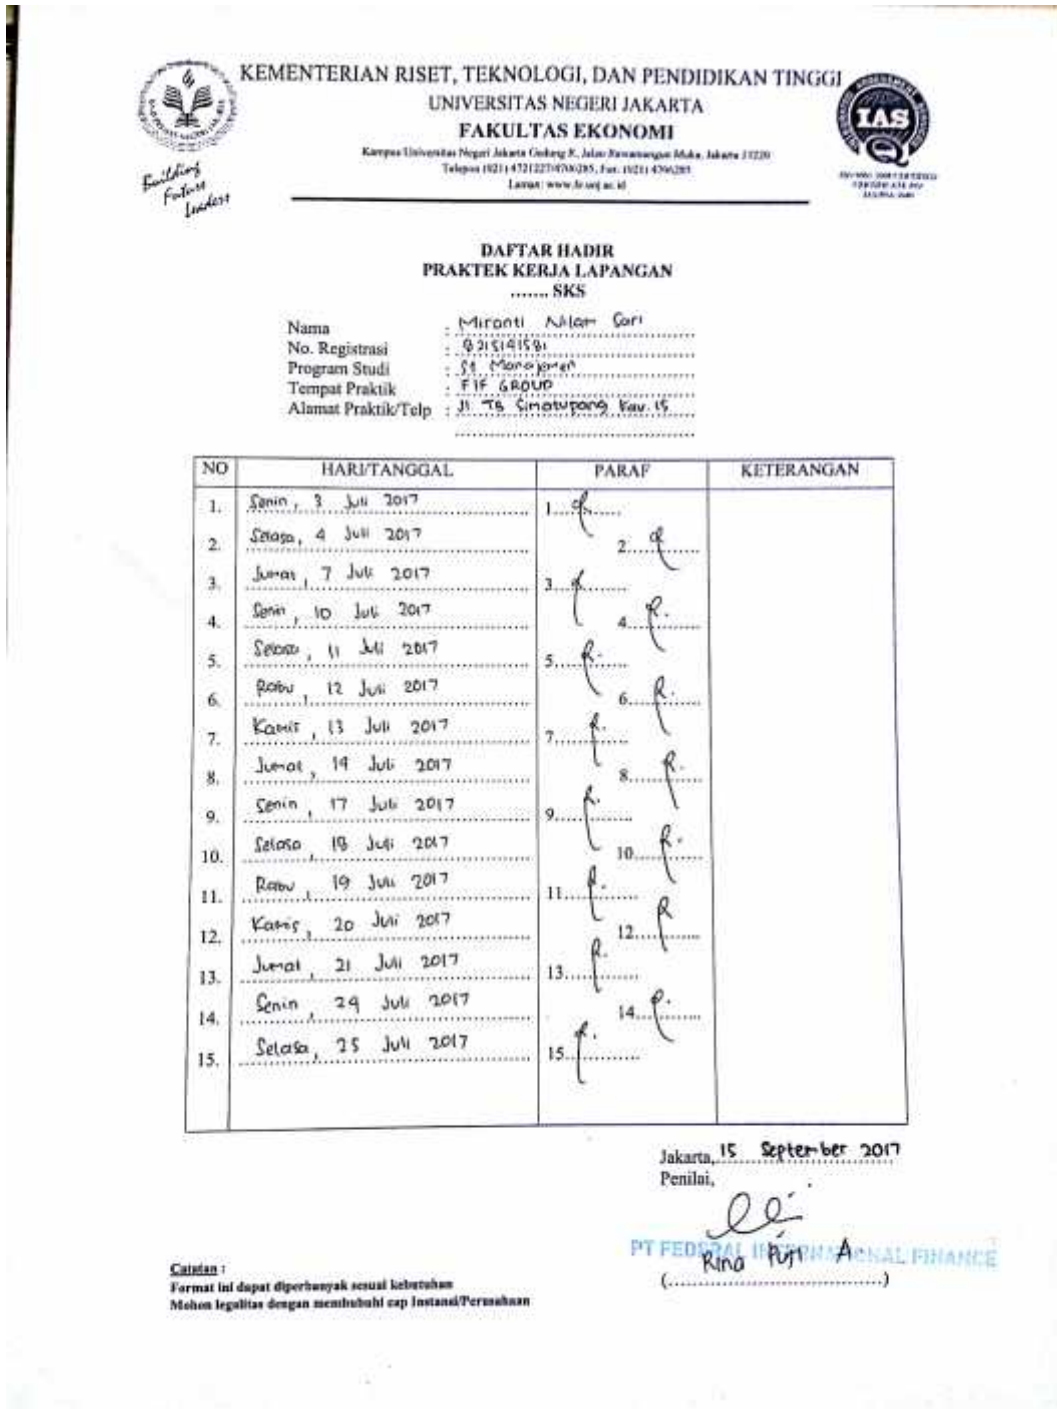 KEMENTERIAN RISET, TEKNOLOGI, DAN PENDIDIKAN TINGGI
UNIVERSITAS NEGERI JAKARTA
FAKULTAS EKONOMI
Kampus Universitas Negeri Jakarta Gedung R, Jalan Rawamangun Muka, Jakarta 13220
Telepon (021) 4721227/4706285, Fax: (021) 4706285
Laman: www.fe.unj.ac.id
Building
Future
Leaders
IAS
DAFTAR HADIR
PRAKTEK KERJA LAPANGAN
....... SKS
Nama : Miranti Nilam Sari
No. Registrasi : 8215141581
Program Studi : S1 Manajemen
Tempat Praktik : FIF GROUP
Alamat Praktik/Telp : Jl TB Simatupang Kav. 15
NO HARI/TANGGAL PARAF KETERANGAN
1. Senin, 3 Juli 2017 1.
2. Selasa, 4 Juli 2017 2.
3. Jumat, 7 Juli 2017 3.
4. Senin, 10 Juli 2017 4.
5. Selasa, 11 Juli 2017 5.
6. Rabu, 12 Juli 2017 6.
7. Kamis, 13 Juli 2017 7.
8. Jumat, 14 Juli 2017 8.
9. Senin, 17 Juli 2017 9.
10. Selasa, 18 Juli 2017 10.
11. Rabu, 19 Juli 2017 11.
12. Kamis, 20 Juli 2017 12.
13. Jumat, 21 Juli 2017 13.
14. Senin, 24 Juli 2017 14.
15. Selasa, 25 Juli 2017 15.
Jakarta, 15 September 2017
Penilai,
PT FEDERAL INTERNATIONAL FINANCE
Rina Puji A.
(........................................)
Catatan :
Format ini dapat diperbanyak sesuai kebutuhan
Mohon legalitas dengan membubuhi cap Instansi/Perusahaan